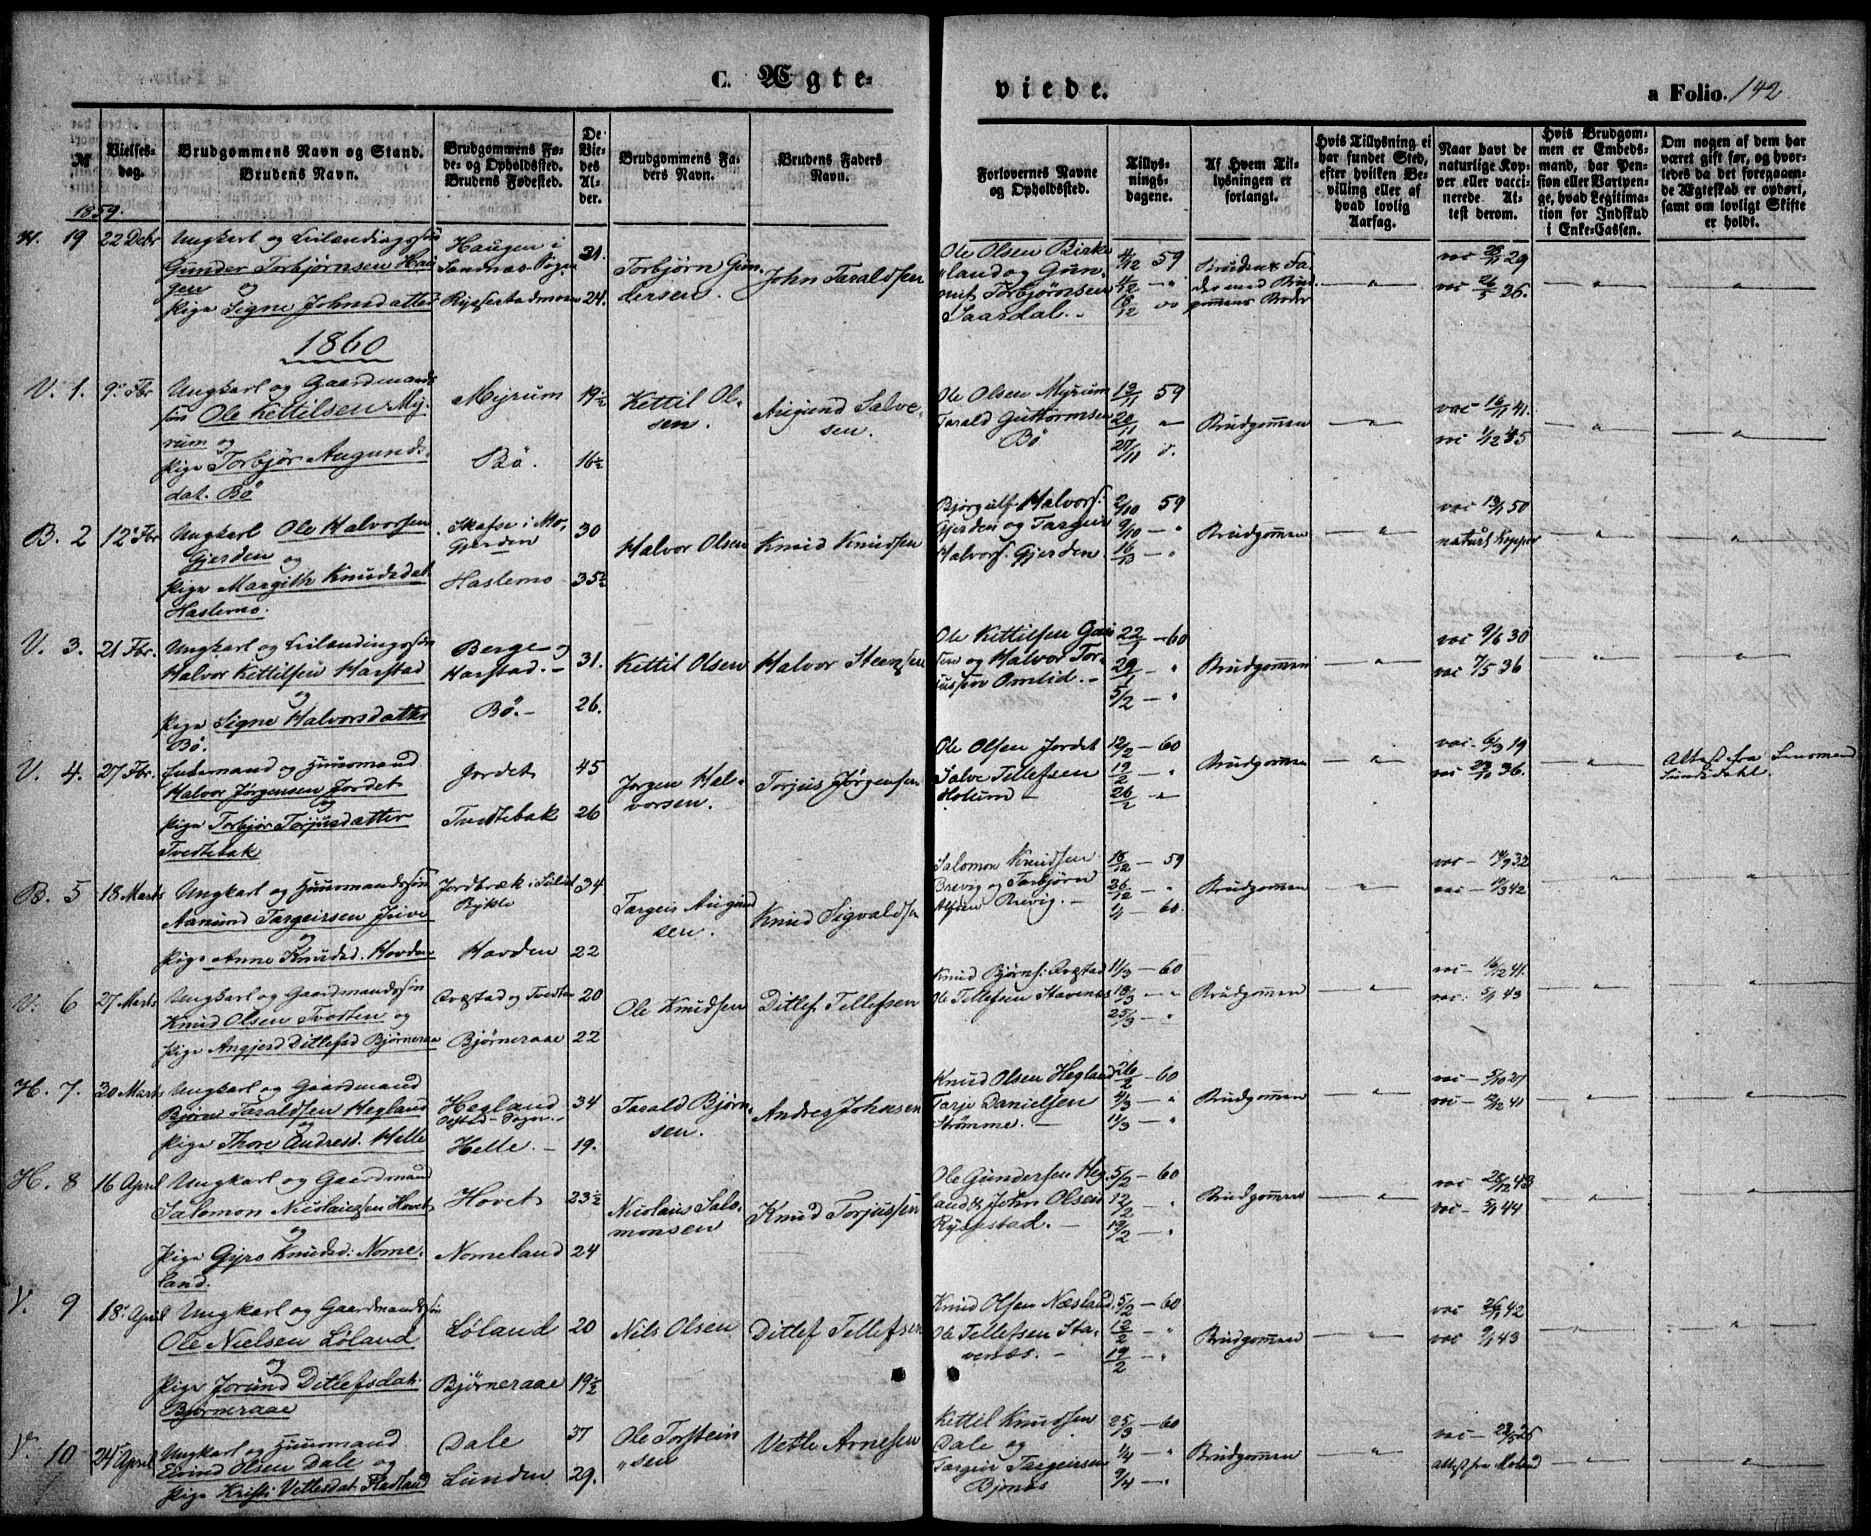 C. Ægte-
viede.
a Folio. 142
№
Vielses-
dag.
Brudgommens Navn og Stand.
Brudens Navn.
Brudgommens Fø-
de- og Opholdssted.
Brudens Fødested.
De
Vie-
des
Al-
der.
Brudgommens Fa-
ders Navn.
Brudens Faders
Navn.
Forlovernes Navne
og Opholdssted.
Tillys-
nings-
dagene.
Af Hvem Til-
lysningen er
forlangt.
Hvis Tillysning ei
har fundet Sted,
efter hvilken Be-
villing eller af
hvad lovlig
Aarsag.
Naar havt de
naturlige Kop-
per eller vacci-
nerede At-
test derom.
Hvis Brudgom-
men er Embeds-
mand, har Pen-
sion eller Vartpen-
ge, hvad Legitima-
tion for Indskud
i Enke-Cassen.
Om nogen af dem har
været gift før, og hvor-
ledes da det foregaaen-
de Ægteskab er ophørt,
samt om lovligt Skifte
er holdt.
1859.
H. 19 22 Decbr Ungkarl og Leilændingssøn
Gunder Torbjørnsen Hau-
gen og
Pige Signe Johnsdatter
Haugen i
Sandnæs-Sogn
Rygsestadmoen
21.
24.
Torbjørn Gun-
dersen.
John Taraldsen
Ole Olsen Birke-
land og Gun-
nuf Torbjørnsen
Saardal.
4/12 59
11/12 — "
18/12
Brudens Fa-
der med Brud-
gommens Broder
vac 29
vac 26/5 36.
1860
V. 1. 9. Fbr Ungkarl og Gaardmands-
søn Ole Kettilsen My-
rum og
Pige Torbjør Augunds-
dat. Bø
Myrum
Bø.
19½
16½
Kettil Ol-
sen.
Augund Salve-
sen.
Ole Olsen Myrum
Tarald Guttormsen
Bø
13/11 59
20/11 "
27/11
Brudgommen
vac 16/11 41.
vac 1/12 45
B. 2 12 Fbr Ungkarl Ole Halvorsen
Gjerden og
Pige Margith Knudsdat.
Haslemo.
Skafse i Mo,
Gjerden
Haslemo
30
35½
Halvor Olsen
Knud Knudsen
Bjørgulf Halvors.
Gjerden og Targer
Halvors. Gjerden
2/10 59
9/10 — "
16/10 — "
Brudgommen
vac 13/1 50
naturl. Kopper
V. 3. 21 Fbr. Ungkarl og Leilændingssøn
Halvor Kettilsen Harstad
og
Pige Signe Halvorsdatter
Bø.
Berge og
Harstad.
Bø.
31.
26.
Kettil Olsen
Halvor Steensen
Ole Kettilsen
og Halvor Tor-
jussen Omlid.
22/1 — 60
29/1 — "
5/2 — "
Brudgommen
vac 9/6 30
vac 7/5 36
V. 4. 27 Fbr. Enkemand og Huusmand
Halvor Jørgensen Jordet
og
Pige Torbjør Torjusdatter
Tvedtebak
Jordet
Tvedtebak
45
26
Jørgen Hal-
vorsen.
Torjus Jørgensen
Ole Olsen Jordet
Salve Tellefsen
Hotum
12/2 — 60
19/2 — "
26/2 — "
Brudgommen
vac 6/3 19
vac 36.
Attest fra Lensmand
B. 5 18 Marts Ungkarl og Huusmandssøn
Aanund Targeirsen Juve
og
Pige Anne Knudsd. Hovden
Jordbræk i Sulid
Bykle
Hovden
34
22
Targeir Augund-
sen.
Knud Sigvaldsen
Salomon Knudsen
Brevig og Torbjørn
Brevig.
18/12 — 59
26/12 — "
1/1 — 60.
Brudgommen
vac — 32
vac — 42
V. 6 27 Marts Ungkarl og Gaardmandssøn
Knud Olsen Tvedten og
Pige Angjerd Ditlefsd Bjørneraa
Rygstad og Tvedten
Bjørneraae
20
22
Ole Knudsen
Ditlef Tellefsen
Knud Bjørns. Rygstad
Ole Tellefsen Stavenæs
11/3 — 60
18/3 — "
25/3 — "
Brudgommen
vac — 16/12 41.
vac. 5/1 43
H. 7. 30 Marts Ungkarl og Gaardmand
Bjørn Taraldsen Hegland
og
Pige Thore Andresd. Helle
Hegland
Østad-Sogn.
Helle.
34
19.
Tarald Bjørn-
sen.
Andres Johnsen
Knud Olsen Hegland
Tarje Danielsen
Strømme.
26/2 — 60
4/3 — "
11/3 — "
Brudgommen
vac — 5/10 27
vac — 41
H. 8 16 April Ungkarl og Gaardmand
Salomon Nicolaisen Hovet
og
Pige Gyro Knudsd. Nome-
land.
Hovet
Nomeland
23½
24
Nicolaus Salo-
monsen
Knud Torjussen
Ole Gundersen Heg-
land & John Olsen
Rygsestad.
5/2 — 60
12/2 — "
19/2 — "
Brudgommen
vac — 28/12 43
vac — 44
V. 9 18 April Ungkarl og Gaardmandssøn
Ole Nielsen Løland
og
Pige Jorund Ditlefsdat.
Bjørneraae
Løland
Bjørneraae
20
19½
Nils Olsen
Ditlef Tellefsen
Knud Olsen Næsland
Ole Tellefsen Sta-
venæs.
5/2 — 60
12/2 — "
19/2 — "
Brudgommen
vac 42
vac 43
V. 10 24 April Ungkarl og Huusmand
Eivind Olsen Dale og
Pige Kristi Vetlesdat. Fladland
Dale
Lunden
37
29.
Ole Torstein-
"sen
Vetle Arnesen
Kettil Knudsen
Dale og
Targeir Targeirsen
Bjones
25/3 — 60
1/4 "
9/4 — "
Brudgommen
vac — 25
attest fra Moland